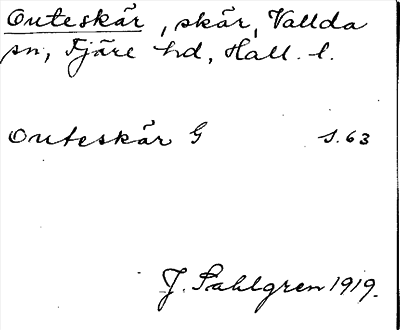 Outeskär, skär, Vallda
sn, Fjäre hd, Hall. l.
Outeskär G s. 63
J. Sahlgren 1919.